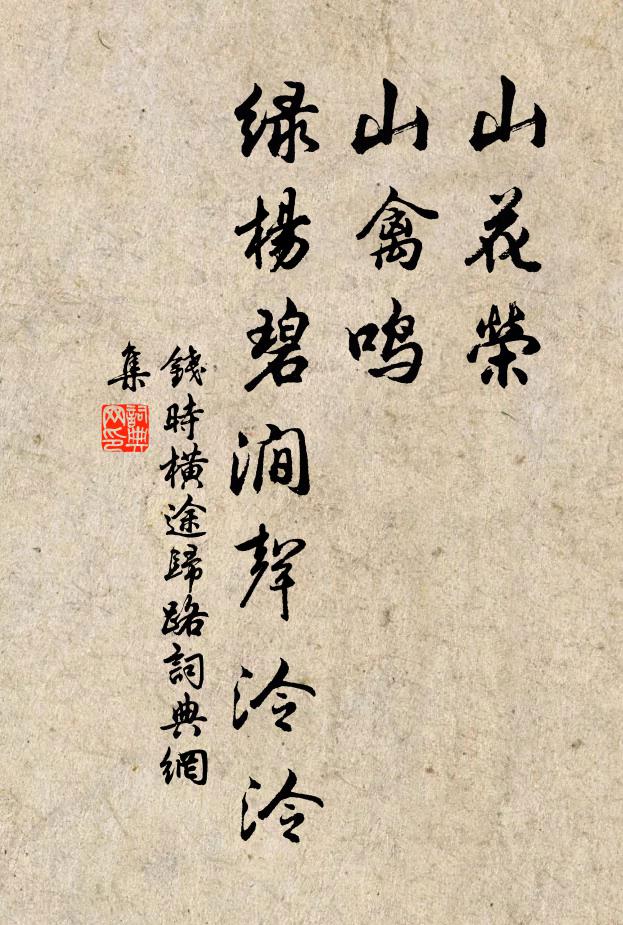 山花榮
山禽鸣
绿楊碧澗聲泠泠
錢時橫途歸路詞典網
集
詞典
网印